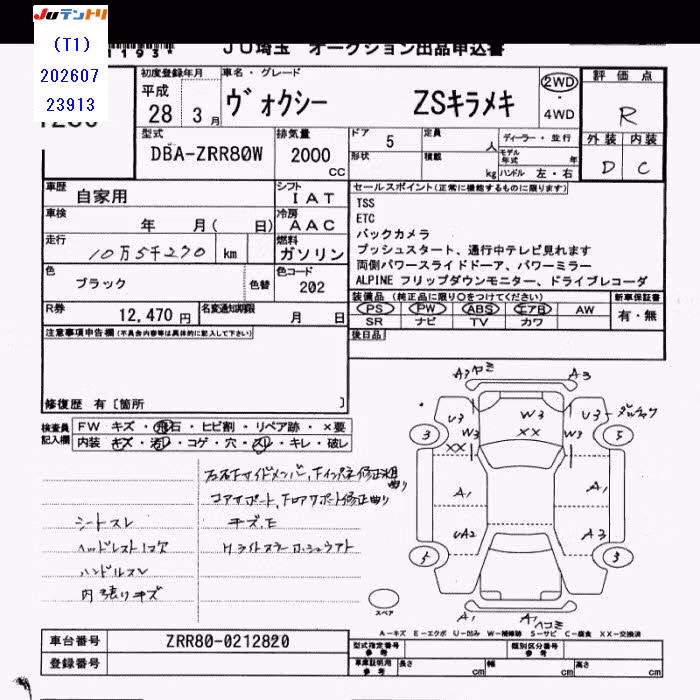 JUテントリ
(T1)
202607
23913
1193*
JU埼玉 オークション出品申込書
初度登録年月
平成
28年 3月
車名・グレード
ヴォクシー ZSキラメキ
2WD
・
4WD
評価点
R
外装 内装
D C
型式
DBA-ZRR80W
排気量
2000
CC
ドア 5
定員 人
ディーラー・並行
形状
積載 kg
モデル年式 年
ハンドル 左・右
車歴
自家用
シフト
IAT
車検
年 月( 日)
冷房
AAC
走行
10万5千270 km
燃料
ガソリン
色
ブラック
色替
色コード
202
R券
12,470 円
名変通知期限
月 日
セールスポイント(正常に機能するものに限ります)
TSS
ETC
バックカメラ
プッシュスタート、通行中テレビ見れます
両側パワースライドドーア、パワーミラー
ALPINE フリップダウンモニター、ドライブレコーダ
装備品 (純正品に限り○をつけてください)
新車保証書
PS PW ABS エアB AW
SR ナビ TV カワ
有・無
後日品
注意事項申告欄(不具合内容等は具体的に記入して下さい)
修復歴 有〔箇所 〕
検査員
記入欄
FW キズ・飛石・ヒビ割・リペア跡・×要
内装・キズ・汚れ・コゲ・穴・スリ・キレ・破レ
シートスレ
ヘッドレスト1コ欠
ハンドルスレ
内張りキズ
コアサポート
キズ、E
A3
A3
U3
W3
U3
W3
XX
W3
XX
3
5
A1
A1
UA2
A3
5
3
A1
A1
ヘコミ
スペア
A-キズ E-エクボ U-凹み W-補修跡 S-サビ C-腐食 XX-交換済
車台番号
ZRR80-0212820
登録番号
型式指定番号
参考
類別区分番号
参考
車庫証明用
参考
長さ cm
幅 cm
高さ cm